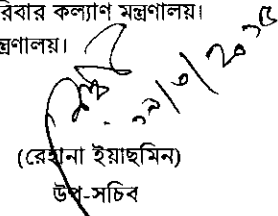 রিবার কল্যাণ মন্ত্রণালয়।
ন্ত্রণালয়।
(রেহানা ইয়াছমিন)
উপ-সচিব